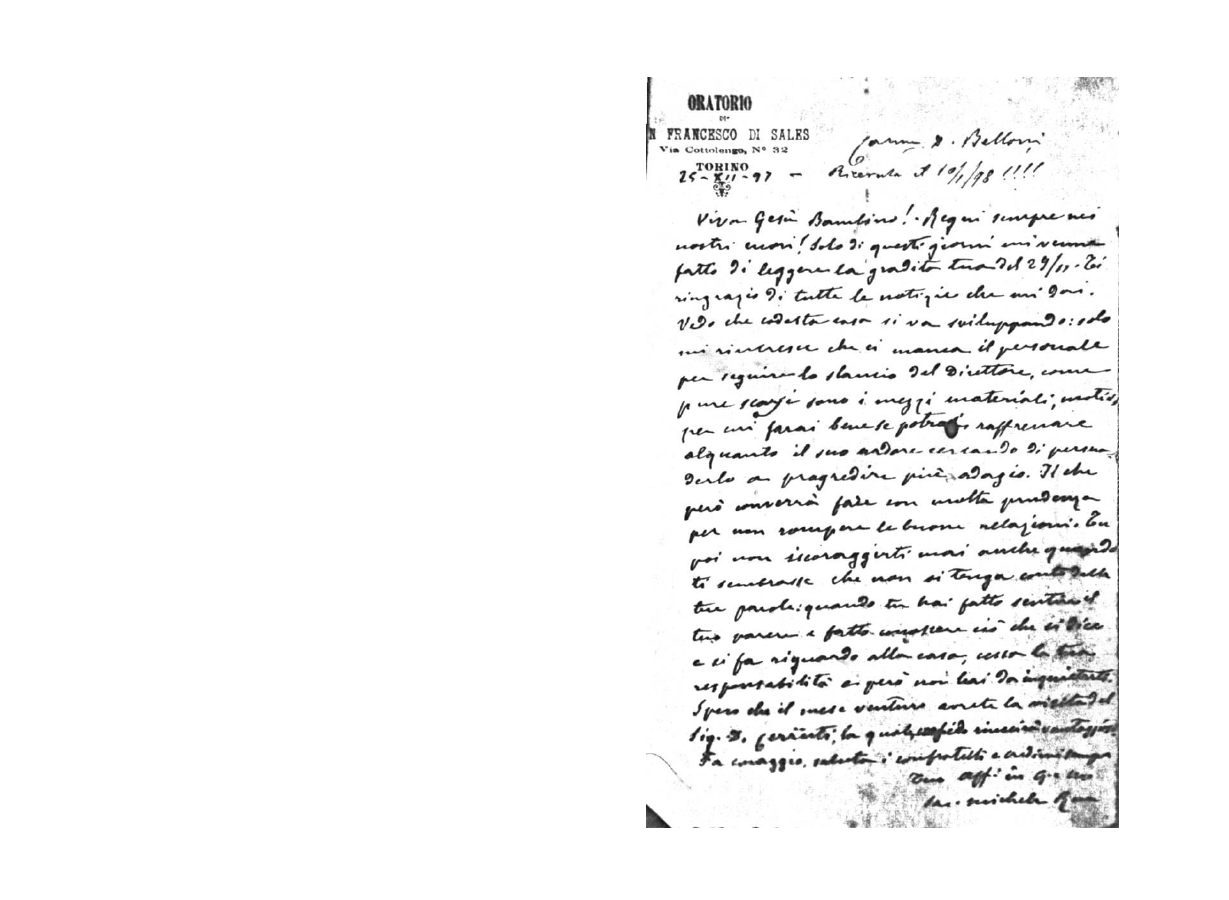 ORATORIO
DI
N FRANCESCO DI SALES
Via Cottolengo, Nº 32
TORINO
25-XII-97 -
D. Belloni
Ricevuta il 10/1/98 !!!!
Viva Gesù Bambino! Regni sempre nei
nostri cuori! Solo di questi giorni mi venne
fatto di leggere la gradita tua del 29/11. Ti
ringrazio di tutte le notizie che mi dai.
Vedo che codesta casa si va sviluppando: solo
mi rincresce che ci manca il personale
per seguire lo slancio del Direttore, come
pure scarsi sono i mezzi materiali, motivo
per cui farai bene se potrai raffrenare
alquanto il suo ardore cercando di persua
derlo a progredire più adagio. Il che
però converrà fare con molta prudenza
per non rompere le buone relazioni. Tu
poi non iscoraggirti mai anche quando
ti sembrasse che non si tenga conto delle
tue parole: quando tu hai fatto sentire il
tuo parere e fatto conoscere ciò che si dice
e si fa riguardo alla casa, cessa la tua
responsabilità e però non hai da inquietarti.
Spero che il mese venturo avrete la visita del
Sig. D. Cerruti, la quale confido riuscirà vantaggiosa
Fa coraggio, saluta i confratelli e credimi sempre
Tuo Aff. in G. e M.
Sac. Michele Rua